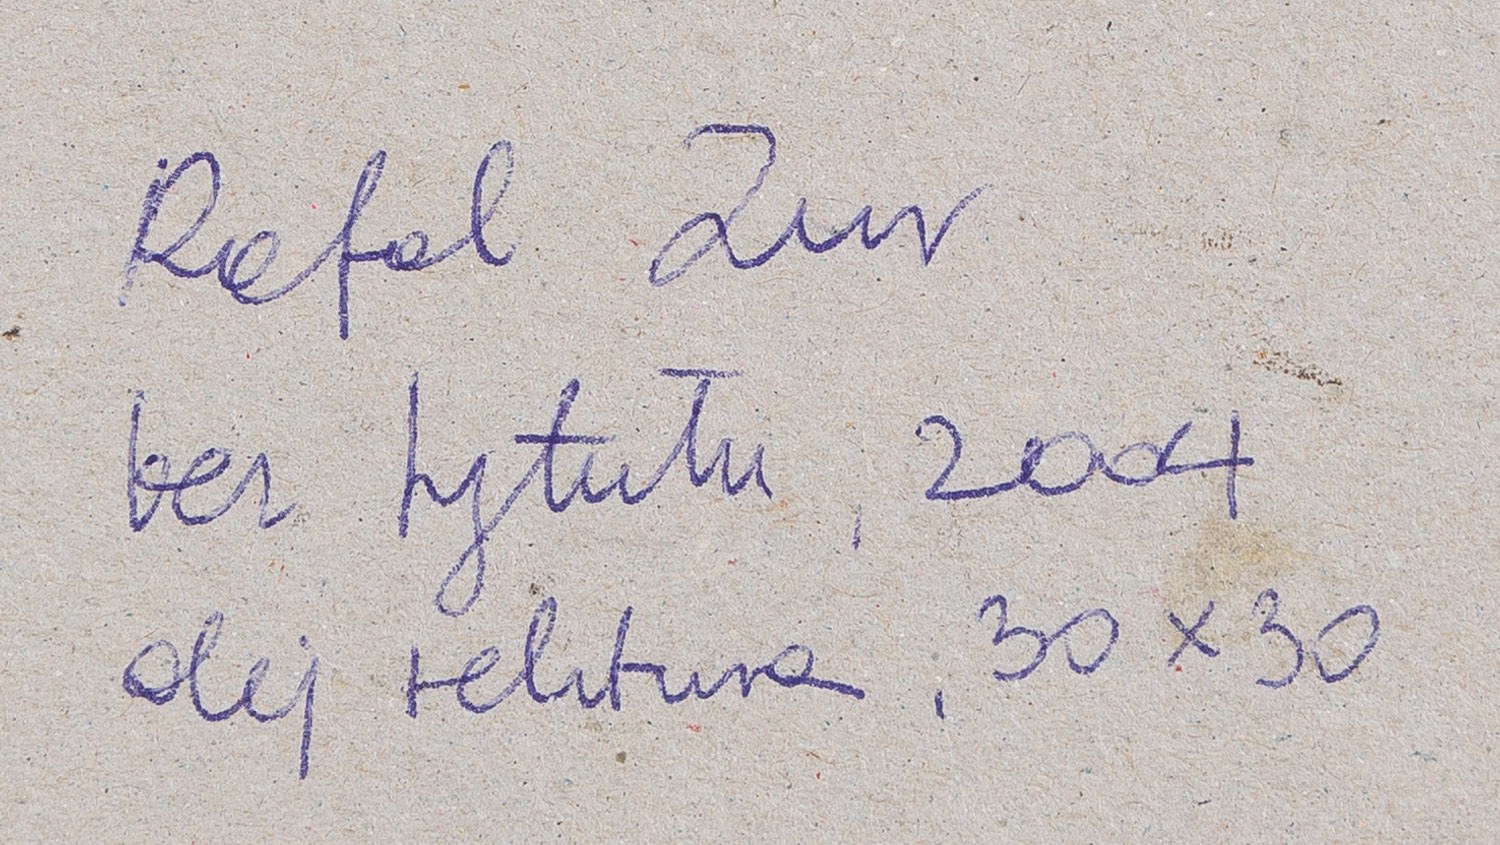 Rafał Żur
bez tytułu, 2004
olej tektura, 30 x 30